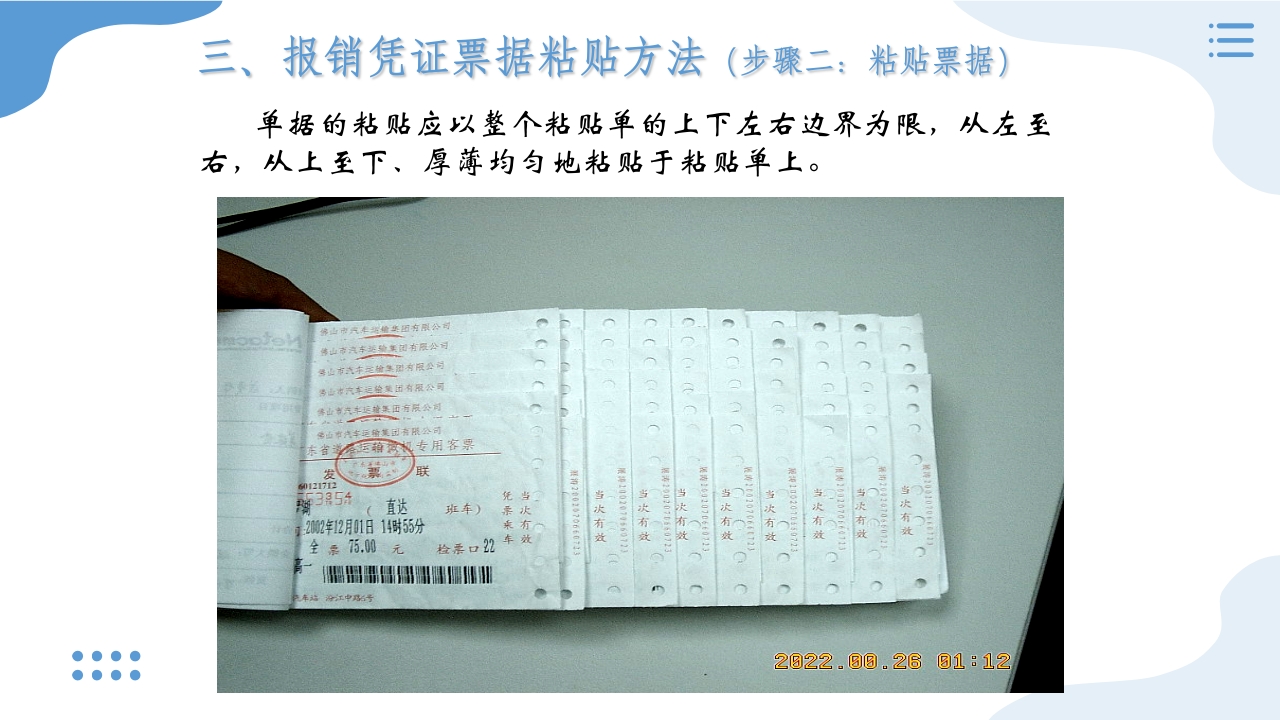 三、报销凭证票据粘贴方法（步骤二：粘贴票据）
单据的粘贴应以整个粘贴单的上下左右边界为限，从左至
右，从上至下、厚薄均匀地粘贴于粘贴单上。
佛山市汽车运输集团有限公司
佛山市汽车运输集团有限公司
佛山市汽车运输集团有限公司
佛山市汽车运输集团有限公司
佛山市汽车运输集团有限公司
佛山市汽车运输集团有限公司
东省道路运输微机专用客票
发 票 联
60121712
（ 直达 班车）
2002年12月01日 14时55分
全 票 75.00 元 检票口 22
凭票乘车
当次有效
当次有效
当次有效
当次有效
当次有效
当次有效
当次有效
当次有效
当次有效
汽车站 汾江中路6号
2022.00.26 01:12